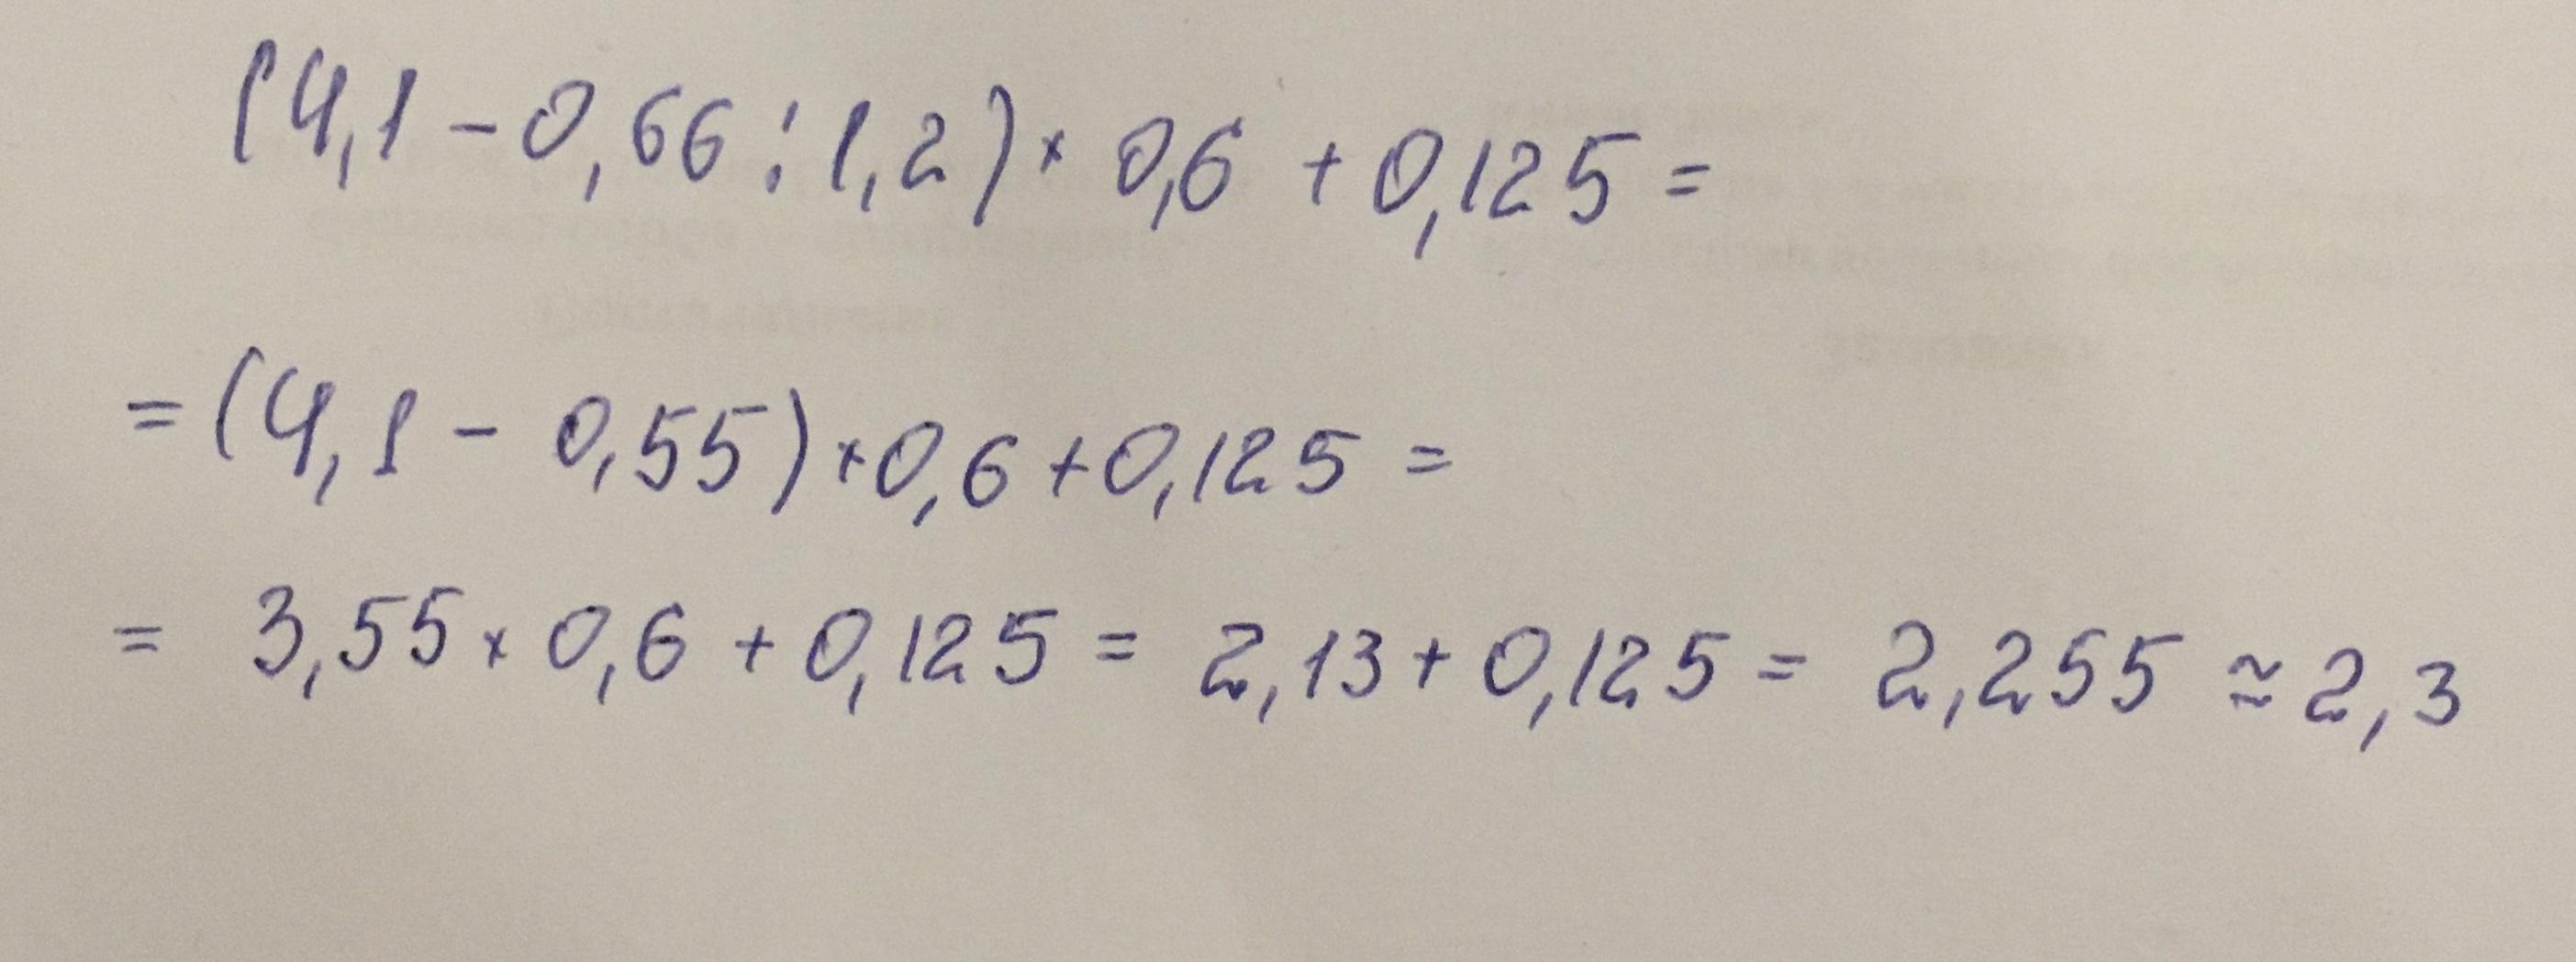 (4,1 - 0,66 : 1,2) × 0,6 + 0,125 =
= (4,1 - 0,55) × 0,6 + 0,125 =
= 3,55 × 0,6 + 0,125 = 2,13 + 0,125 = 2,255 ≈ 2,3